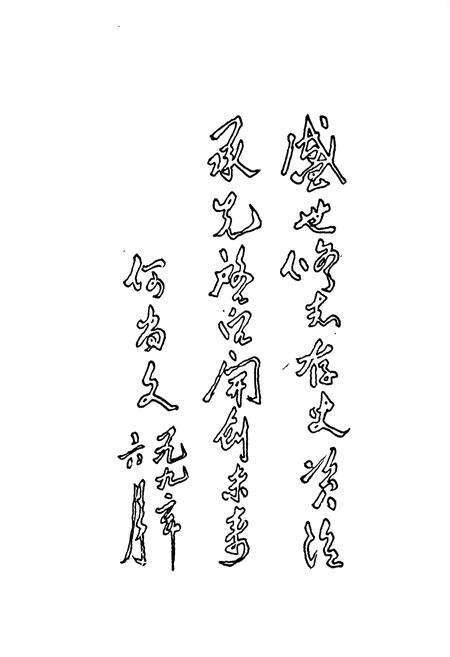 盛世修志存史资治
承先启后开创未来
何尚文
一九九〇年
六月